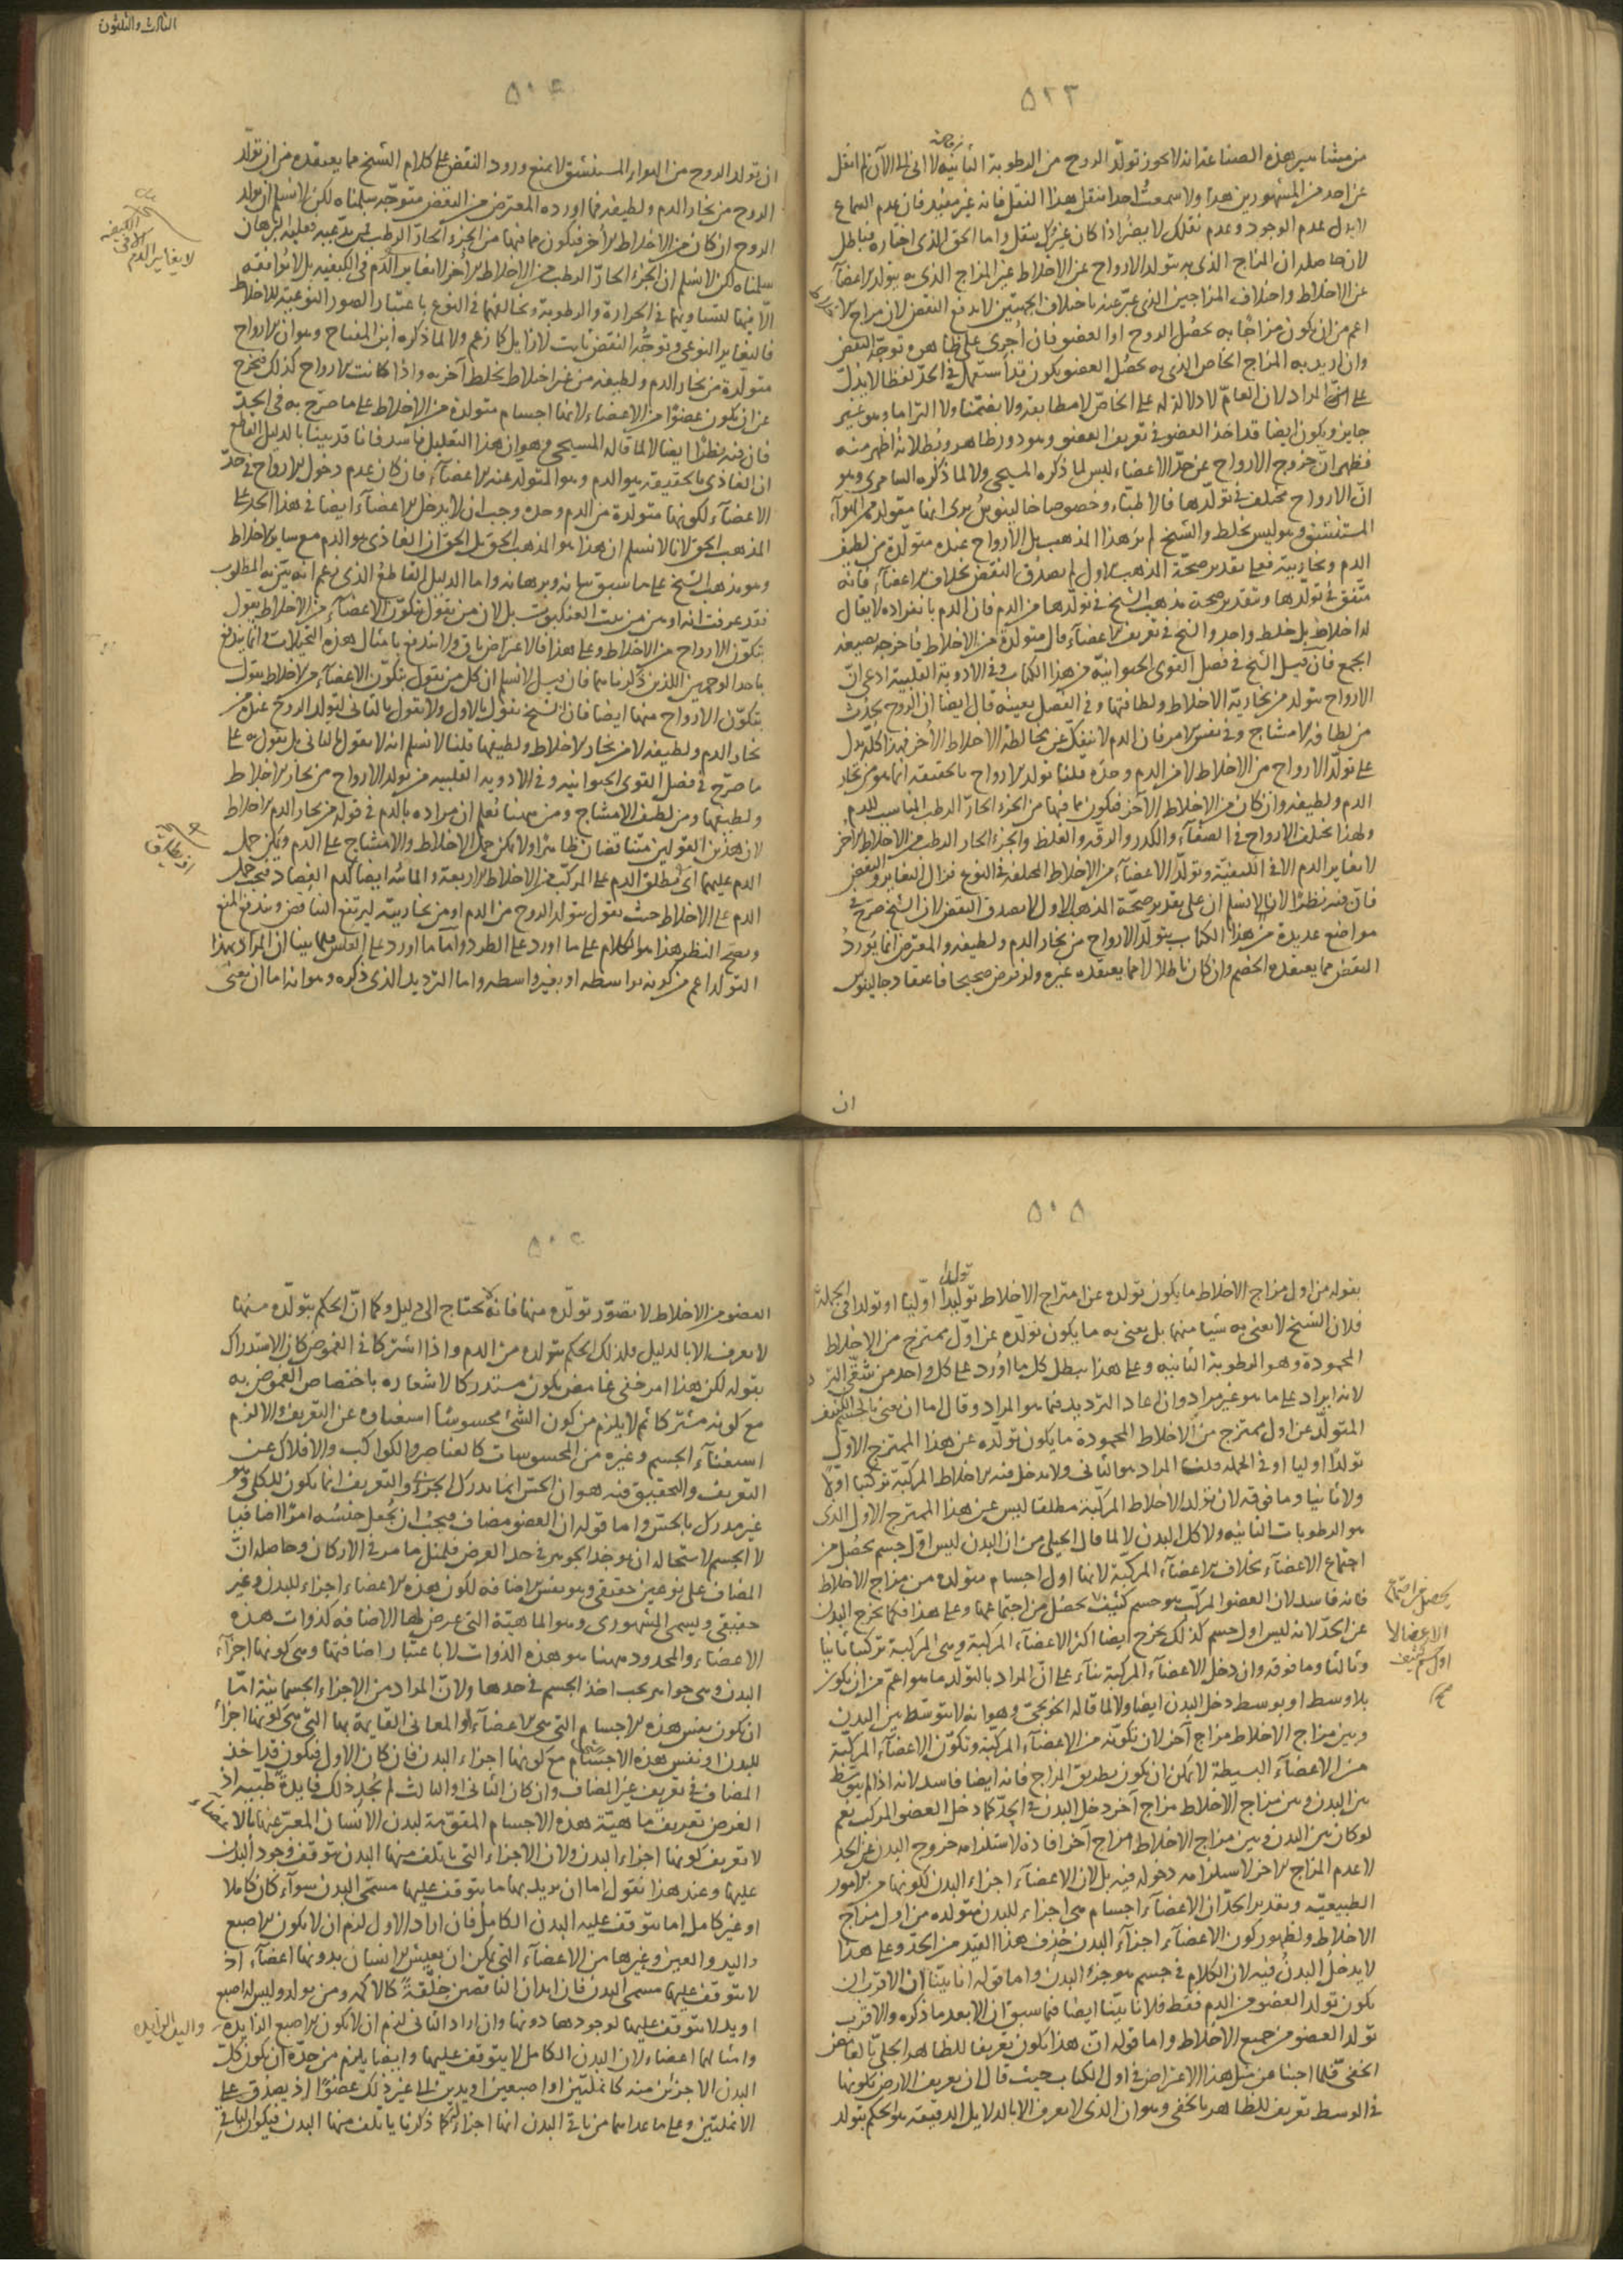 ٥٢٣
من مشاهير هذه الصناعة انه لا يجوز تولد الروح من الرطوبة الثانية لا الى الآن لم انقل
عن احد من المشهورين هذا ولا سمعت احدا ينقل هذا النقل فانه غير مفيد فان عدم السماع
لا يدل عدم الوجود وعدم نقلك لا يضر اذا كان غيرك ينقل واما الحق الذى اختاره فباطل
لان حاصله ان المزاج الذى به يتولد الارواح عن الاخلاط غير المزاج الذى به يتولد الاعضآء
عن الاخلاط واختلاف المزاجين الذى عبر عنه باختلاف الجهتين لا يدفع النقض لان مزاج
اعم من ان يكون مزاجا به يحصل الروح او العضو فان اجرى على ظاهره توجه النقض
وان اريد به المزاج الخاص الذى به يحصل العضو يكون قد استعمل فى الحد لفظا لا يدل
على المراد لان العام لا دلالة له على الخاص لا مطابقة ولا تضمنا ولا التزاما وهو غير
جايز ويكون ايضا قد اخذ العضو فى تعريف العضو وهو دور ظاهر وبطلانه اظهر منه
فظهر ان خروج الارواح عن حد الاعضاء ليس لما ذكره المسيحى ولا لما ذكره السامرى وهو
ان الارواح مختلف فى تولدها فالاطباء وخصوصا جالينوس يرى انها متولدة من الهوآء
المستنشق وهو ليس بخلط والشيخ لم ير هذا المذهب بل الارواح عنده متولدة من لطيف
الدم وبخاريته فعلى تقدير صحة المذهب الاول لم يصدق النقض بخلاف الاعضآء فانه
متفق فى تولدها وبتقدير صحة مذهب الشيخ فى تولدها من الدم فان الدم بانفراده لا يقال
له اخلاط بل خلط واحد والشيخ فى تعريف الاعضآء قال متولدة من الاخلاط فاخرجه بصيغة
الجمع فان قيل الشيخ فى فصل القوى الحيوانية من هذا الكتاب وفى الادوية القلبية ادعى ان
الارواح يتولد من بخارية الاخلاط ولطافتها وفى الفصل بعينه قال ايضا ان الروح يحدث
من لطافة الامشاج وفى نفس الامر فان الدم لا ينفك عن مخالطة الاخلاط الأخر فهذا كله يدل
على تولد الارواح من الاخلاط لا من الدم وحده قلنا تولد الارواح بالحقيقة انما هو من بخار
الدم ولطيفه وان كان من الاخلاط الآخر فيكون مما فيها من الجزء الحار الرطب المناسب للدم
ولهذا يختلف الارواح فى الصفآء والكدر والرقة والغلظ والجزء الحار الرطب من الاخلاط الأخر
لا يغاير الدم الا فى الكيفية وتولد الاعضآء من الاخلاط المختلفة فى النوع فزال التغاير والنقض
فان فيه نظرا لانا لا نسلم ان على تقدير صحة المذهب الاول لا يصدق النقض لان الشيخ صرح فى
مواضع عديدة من هذا الكتاب بتولد الارواح من بخار الدم ولطيفه والمعترض انما يورد
النقض مما يعتقده الخصم وان كان باطلا لا مما يعتقده غيره ولو فرض صحيحا فاعتقاد جالينوس
ان
الثالث والثلثون
٥٠٤
ان تولد الروح من الهواء المستنشق لا يمنع ورود النقض على كلام الشيخ مما يعتقده من ان تولد
الروح من بخار الدم ولطيفه فما اورده المعترض من النقض متوجه سلمناه لكن لا نسلم ان تولد
الروح ان كان من الاخلاط الأخر فيكون مما فيها من الجزء الحار الرطب لم يدع به فعليه البرهان
سلمناه لكن لا نسلم ان الجزء الحار الرطب من الاخلاط الأخر لا يغاير الدم فى الكيفية بل لا يوافقه
الا فيها لتساويهما فى الحرارة والرطوبة وتخالفهما فى النوع باعتبار الصور النوعية للاخلاط
فالتغاير النوعى وتوجه النقض ثابت لا زايل كما زعم ولا لما ذكره ابن المفتاح وهو ان الارواح
متولدة من بخار الدم ولطيفه من غير اختلاط بخلط آخر به واذا كانت الارواح كذلك فتخرج
عن ان يكون عضوا من الاعضاء لانها اجسام متولدة من الاخلاط على ما صرح به فى الحد
فان فيه نظرا ايضا لا لما قاله المسيحى وهو ان هذا التعليل فاسد فانا قد بينا بالدليل القاطع
ان الغاذى بالحقيقة هو الدم وهو المتولد عنه الاعضآء فان كان عدم دخول الارواح فى حد
الاعضآء لكونها متولدة من الدم وحده وجب ان لا يدخل الاعضآء ايضا فى هذا الحد على
المذهب الحق لانا لا نسلم ان هذا هو المذهب الحق بل الحق ان الغاذى هو الدم مع ساير الاخلاط
وهو مذهب الشيخ على ما سبق بيانه وبرهانه واما الدليل القاطع الذى زعم انه يتبين به المطلوب
فقد عرفت انه اوهن من بيت العنكبوت بل لان من يقول بتكون الاعضآء من الاخلاط يقول
بتكون الارواح من الاخلاط وعلى هذا فالاعتراض باق ولا يندفع بامثال هذه التخيلات انما يندفع
باحد الوجهين اللذين ذكرناهما فان قيل لا نسلم ان كل من يقول بتكون الاعضآء من الاخلاط يقول
بتكون الارواح منها ايضا فان الشيخ يقول بالاول ولا يقول بالثانى لتولد الروح عنده من
بخار الدم ولطيفه لا من بخار الاخلاط ولطيفها قلنا لا نسلم انه لا يقول بالثانى بل يقول به على
ما صرح فى فصل القوى الحيوانية وفى الادوية القلبية من تولد الارواح من بخار الاخلاط
ولطيفها ومن لطيف الامشاج ومن ههنا نعلم ان مراده بالدم فى قوله من بخار الدم الاخلاط
لان هذين القولين متناقضان ظاهرا ولا يمكن حمل الاخلاط والامشاج على الدم ويمكن حمل
الدم عليهما اى يطلق الدم على المركب من الاخلاط الاربعة
الدم على الاخلاط حيث يقول بتولد الروح من الدم او من بخاريته ليرتفع التناقض ويندفع المنع
ويصح النظر هذا هو الكلام على ما اورد على الطرد واما ما اورد على العكس فلما بينا ان المراد بهذا
التولد اعم من كونه بواسطة او بغير واسطة واما الترديد الذى ذكره وهو انه اما ان يعنى
الكيفية
لا يغاير الدم
٥٠٥
بقوله من اول مزاج الاخلاط ما يكون تولده عن امتزاج الاخلاط توليدا اوليا او تولدا فى الجملة
فلان الشيخ لا يعنى به شيأ منهما بل يعنى به ما يكون تولده عن اول ممتزج من الاخلاط
المحمودة وهو الرطوبة الثانية وعلى هذا يبطل كل ما اورد على كل واحد من شقى الترد
لانه ايراد على ما هو غير مراد وان اعاد الترديد فيما هو المراد وقال اما ان يعنى بالجسم الكثيف
المتولد عن اول ممتزج من الاخلاط المحمودة ما يكون تولده عن هذا الممتزج الاول
تولدا اوليا او فى الجملة قلنا المراد هو الثانى ولا يدخل فيه الاخلاط المركبة تركيبا اولا
ولا ثانيا وما فوقه لان تولد الاخلاط المركبة مطلقا ليس عن هذا الممتزج الاول الذى
هو الرطوبات الثانية ولا كل البدن لا لما قال الجيلى من ان البدن ليس اول جسم يحصل من
اجتماع الاعضآء بخلاف الاعضآء المركبة لانها اول اجسام متولدة من مزاج الاخلاط
فانه فاسد لان العضو المركب هو جسم كثيف يحصل من اجتماعها وعلى هذا فكما يخرج البدن
عن الحد لانه ليس اول جسم كذلك يخرج ايضا اكثر الاعضآء المركبة وهى المركبة تركيبا ثانيا
وثالثا وما فوقه وان دخل الاعضآء المركبة بنآء على ان المراد بالتولد ما هو اعم من ان يكون
بلا وسط او بوسط دخل البدن ايضا ولا لما قاله الخونجى وهو انه لا يتوسط بين البدن
وبين مزاج الاخلاط مزاج آخر لان تكونه من الاعضآء المركبة وتكون الاعضآء المركبة
من الاعضآء البسيطة لا يمكن ان يكون بطريق المزاج فانه ايضا فاسد لانه اذا لم يتوسط
بين البدن وبين مزاج الاخلاط مزاج آخر دخل البدن فى الحد كما دخل العضو المركب نعم
لو كان بين البدن وبين مزاج الاخلاط مزاج آخر افاده لاستلزامه خروج البدن عن الحد
لا عدم المزاج الآخر لاستلزامه دخوله فيه بل لان الاعضآء اجزاء البدن لكونها من الامور
الطبيعية وتقدير الحد ان الاعضآء اجسام هى اجزاء للبدن متولدة من اول مزاج
الاخلاط ولظهور كون الاعضآء اجزآء البدن حذف هذا القيد من الحد وعلى هذا
لا يدخل البدن فيه لان الكلام فى جسم هو جزء البدن واما قوله انا بينا ان الاقرب ان
يكون تولد العضو من الدم فقط فلانا بينا ايضا فيما سبق ان الابعد ما ذكره والاقرب
تولد العضو من جميع الاخلاط واما قوله ان هذا يكون تعريفا للظاهر الجلى بالغامض
الخفى فلما اجبنا عن مثل هذا الاعتراض فى اول الكتاب حيث قال ان تعريف الارض بكونها
فى الوسط تعريف للظاهر بالخفى وهو ان الذى لا يعرف الا بالدلايل الدقيقة هو الحكم بتولد
يحصل من اجتماع
الاعضا لا
اول جسم كثيف
صح
العضو من الاخلاط لا تصور تولده منها فانه لا يحتاج الى دليل وكما ان الحكم بتولده منها
لا يعرف الا بالدليل فكذلك الحكم بتولده من الدم واذا اشتركا فى الغموض كان الاستدراك
بقوله لكن هذا امر خفى غامض يكون مستدركا لاشعاره باختصاص الغموض به
مع كونه مشتركا ثم لا يلزم من كون الشئ محسوسا استغناؤه عن التعريف والا لزم
استغنآء الجسم وغيره من المحسوسات كالعناصر والكواكب والافلاك عن
التعريف والتحقيق فيه هو ان الحس انما يدرك الجزئى والتعريف انما يكون للكلى وهو
غير مدرك بالحس واما قوله ان العضو مضاف فيجب ان يجعل جنسه امرا اضافيا
لا الجسم لاستحالة ان يوخذ الجوهر فى حد العرض فلمثل ما مر فى الاركان وحاصله ان
المضاف على نوعين حقيقى وهو نفس الاضافة لكون هذه الاعضاء اجزاء للبدن وغير
حقيقى ويسمى المشهورى وهو الماهية التى عرض لها الاضافة كذوات هذه
الاعضاء والمحدود ههنا هو هذه الذوات لا باعتبار اضافتها وهى كونها اجزآء
البدن وهى جواهر يجب اخذ الجسم فى حدها ولان المراد من الاجزاء الجسمانية اما
ان يكون نفس هذه الاجسام التى هى الاعضآء او المعانى القايمة بها التى هى كونها اجزآء
للبدن او نفس هذه الاجسام مع كونها اجزاء البدن فان كان الاول فيكون قد اخذ
المضاف فى تعريف غير المضاف وان كان الثانى او الثالث لم يجد ذلك فايدة طبية اذ
الغرض تعريف ماهية هذه الاجسام المقومة لبدن الانسان المعبر عنها بالاعضاء
لا تعريف كونها اجزاء البدن ولان الاجزاء التى ياتلف منها البدن يتوقف وجود البدن
عليها وعند هذا نقول اما ان يريد بها ما يتوقف عليها مسمى البدن سوآء كان كاملا
او غير كامل اما يتوقف عليه البدن الكامل فان اراد الاول لزم ان لا يكون الاصبع
واليد والعين وغيرها من الاعضآء التى يمكن ان يعيش الانسان بدونها اعضآء اذ
لا يتوقف عليها مسمى البدن فان ابدان الناقصين خلقة كالاكمه ومن يولد وليس له اصبع
او يد لا يتوقف عليها لوجودها دونها وان اراد الثانى لزم ان لا يكون الاصبع الزايدة
وامثالها اعضاء لان البدن الكامل لا يتوقف عليها وايضا يلزم من حده ان يكون كل
البدن الا جزئين منه كانملتين او اصبعين او يدين الى غير ذلك عضوا اذ يصدق على
الانملتين وعلى ما عداهما من باقى البدن انها اجزاء كما ذكرنا ياتلف منها البدن فيكون الباقى
واليد الزايدة